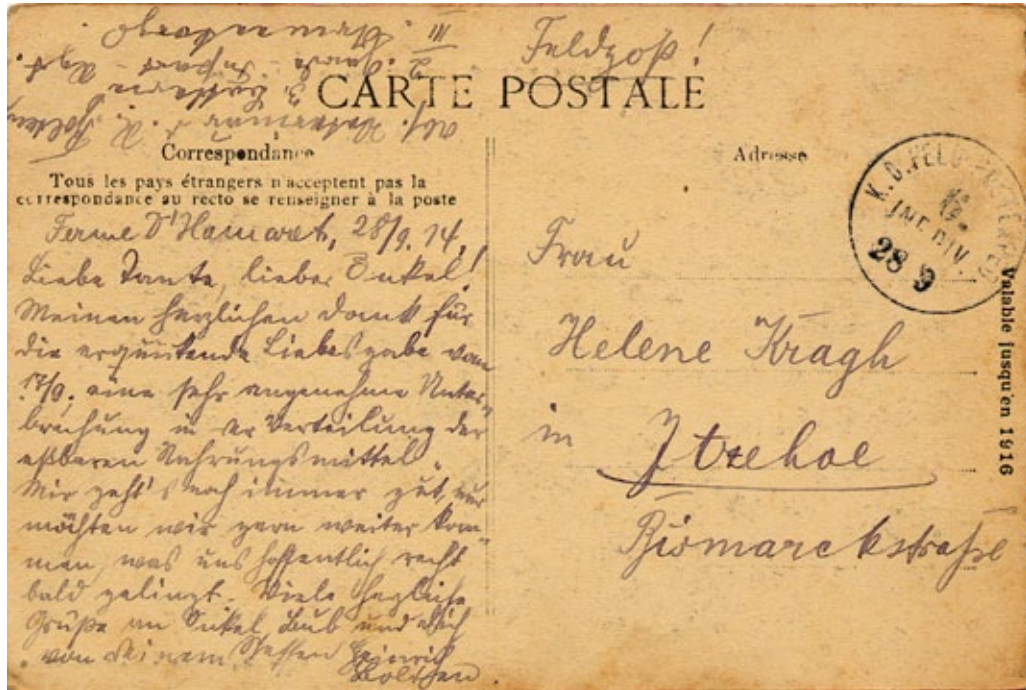 Feldpost!
CARTE POSTALE
Correspondance
Tous les pays étrangers n'acceptent pas la
correspondance au recto se renseigner à la poste
Adresse
Ferme D'Hamaret, 28/9. 14.
Liebe Tante, lieber Onkel!
Meinen herzlichen Dank für
die erquickende Liebesgabe vom
17/9. eine sehr angenehme Unter-
brechung in der Verteilung der
eßbaren Nahrungsmittel.
Mir geht's noch immer gut, nur
möchten wir gern weiter kom-
men, was uns hoffentlich recht
bald gelingt. Viele herzliche
Grüße an Onkel, Bub und Dich
von Deinem Neffen Heinrich
Frau
Helene Kragh
in Itzehoe
Bismarckstraße
K. D. FELD-POSTEXPED
INF. DIV.
28 9
Valable jusqu'en 1916